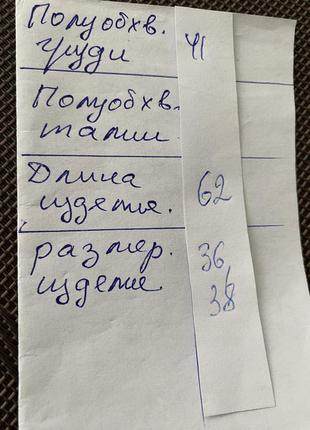 Полуобхв. 41
груди
Полуобхв.
талии
Длина
изделия. 62
размер. 36
изделия. 38